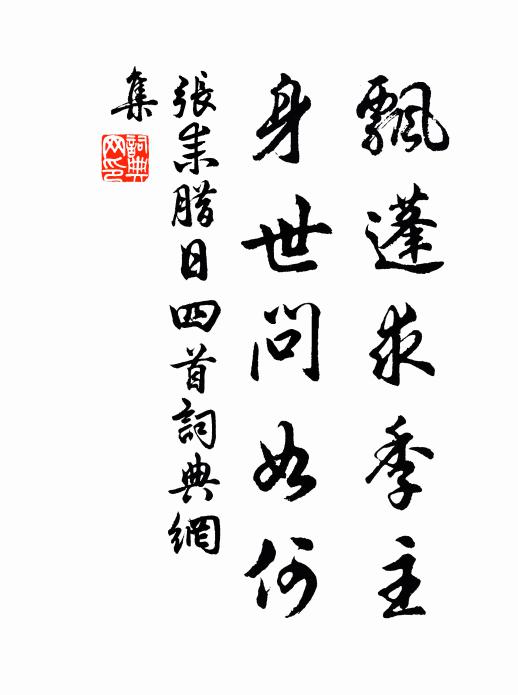 飄蓬求季主
身世問如何
張耒腊日四首詞典網
集
詞典網印